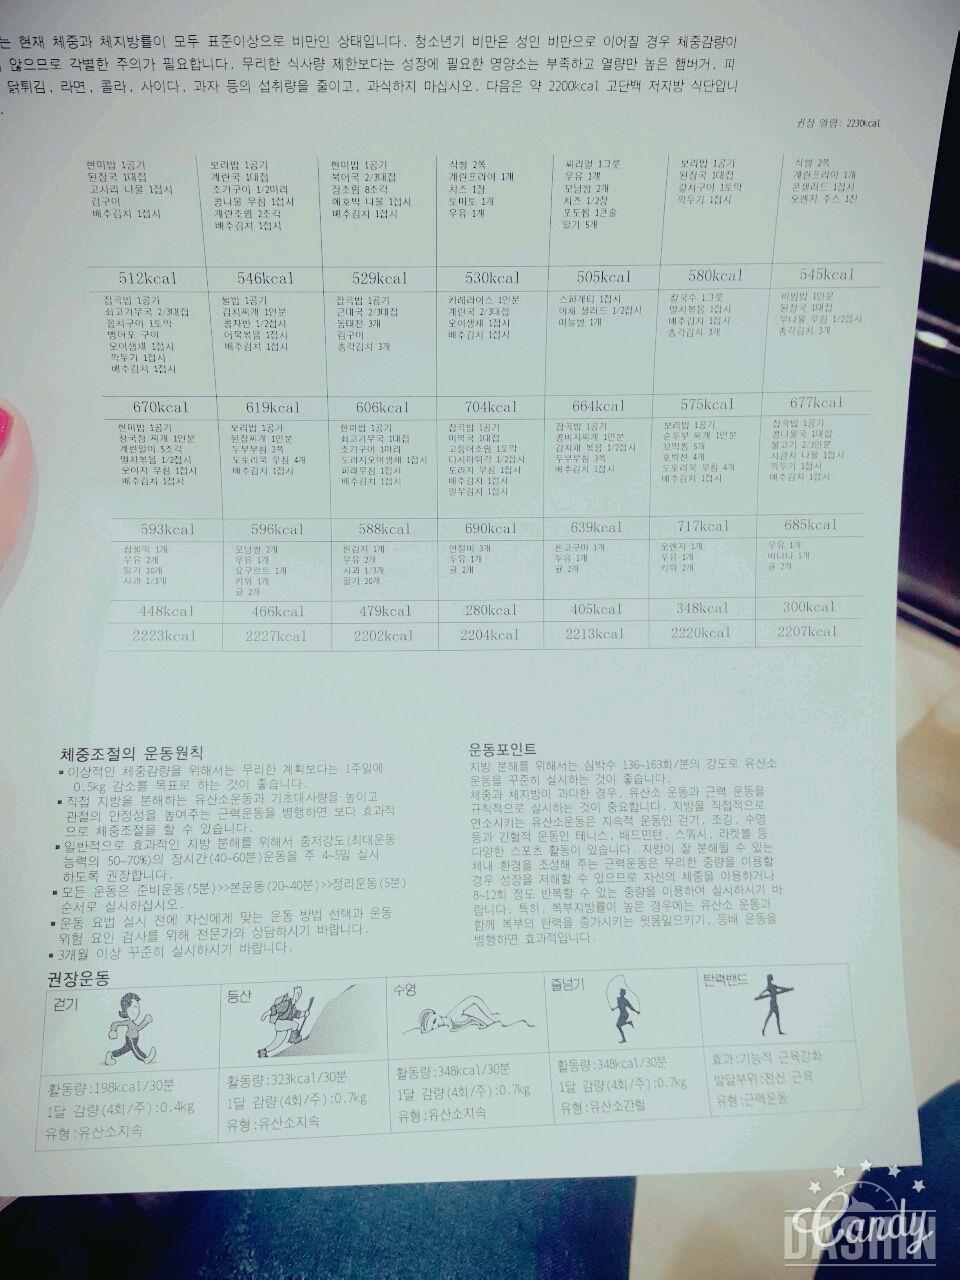 는 현재 체중과 체지방률이 모두 표준이상으로 비만인 상태입니다. 청소년기 비만은 성인 비만으로 이어질 경우 체중감량이
않으므로 각별한 주의가 필요합니다. 무리한 식사량 제한보다는 성장에 필요한 영양소는 부족하고 열량만 높은 햄버거, 피
닭튀김, 라면, 콜라, 사이다, 과자 등의 섭취량을 줄이고, 과식하지 마십시오. 다음은 약 2200kcal 고단백 저지방 식단입니
권장 열량: 2230kcal
현미밥 1공기
된장국 1대접
고사리 나물 1접시
김구이
배추김치 1접시
보리밥 1공기
계란국 1대접
조기구이 1/2마리
콩나물 무침 1접시
계란조림 2조각
배추김치 1접시
현미밥 1공기
북어국 2/3대접
장조림 8조각
애호박 나물 1접시
배추김치 1접시
식빵 2쪽
계란프라이 1개
치즈 1장
토마토 1개
우유 1개
씨리얼 1그릇
우유 1개
모닝빵 2개
치즈 1/2장
포도쨈 1큰술
딸기 5개
보리밥 1공기
된장국 1대접
갈치구이 1토막
깍두기 1접시
식빵 2쪽
계란프라이 1개
콘샐러드 1접시
오렌지 주스 1잔
512kcal 546kcal 529kcal 530kcal 505kcal 580kcal 545kcal
잡곡밥 1공기
쇠고기무국 2/3대접
꽁치구이 1토막
뱅어포 구이
오이생채 1접시
깍두기 1접시
배추김치 1접시
쌀밥 1공기
김치찌개 1인분
콩자반 1/2접시
어묵볶음 1접시
배추김치 1접시
잡곡밥 1공기
근대국 2/3대접
동태전 3개
김구이
총각김치 3개
카레라이스 1인분
계란국 2/3대접
오이생채 1접시
배추김치 1접시
스파게티 1접시
야채 샐러드 1/2접시
마늘빵 1개
칼국수 1그릇
멸치볶음 1접시
배추김치 1접시
총각김치 3개
비빔밥 1인분
된장국 1대접
무나물 무침 1/2접시
총각김치 3개
670kcal 619kcal 606kcal 704kcal 664kcal 575kcal 677kcal
현미밥 1공기
청국장 찌개 1인분
계란말이 5조각
멸치볶음 1/2접시
오이지 무침 1접시
배추김치 1접시
보리밥 1공기
된장찌개 1인분
두부부침 2쪽
도토리묵 무침 4개
배추김치 1접시
현미밥 1공기
쇠고기무국 1대접
조기구이 1마리
도라지오이생채 1접시
파래무침 1접시
배추김치 1접시
잡곡밥 1공기
미역국 1대접
고등어조림 1토막
다시마튀각 1/2접시
도라지 무침 1접시
배추김치 1접시
열무김치 1접시
잡곡밥 1공기
콩비지찌개 1인분
감자채 볶음 1/2접시
두부부침 3쪽
배추김치 1접시
보리밥 1공기
순두부 찌개 1인분
꼬막찜 5개
호박전 4개
도토리묵 무침 4개
배추김치 1접시
잡곡밥 1공기
콩나물국 1대접
불고기 2/3인분
시금치 나물 1접시
깍두기 1접시
배추김치 1접시
593kcal 596kcal 588kcal 690kcal 639kcal 717kcal 685kcal
찹쌀떡 1개
우유 2개
딸기 10개
사과 1/3개
모닝빵 2개
우유 1개
요구르트 1개
키위 1개
귤 2개
찐감자 1개
우유 2개
사과 1/3개
딸기 20개
인절미 3개
두유 1개
귤 2개
찐고구마 1개
두유 1개
귤 2개
오렌지 1개
우유 1개
키위 2개
우유 1개
바나나 1개
귤 2개
448kcal 466kcal 479kcal 280kcal 405kcal 348kcal 300kcal
2223kcal 2227kcal 2202kcal 2204kcal 2213kcal 2220kcal 2207kcal
체중조절의 운동원칙
▪ 이상적인 체중감량을 위해서는 무리한 계획보다는 1주일에
0.5kg 감소를 목표로 하는 것이 좋습니다.
▪ 직접 지방을 분해하는 유산소운동과 기초대사량을 높이고
관절의 안정성을 높여주는 근력운동을 병행하면 보다 효과적
으로 체중조절을 할 수 있습니다.
▪ 일반적으로 효과적인 지방 분해를 위해서 중저강도(최대운동
능력의 50~70%)의 장시간(40~60분)운동을 주 4~5일 실시
하도록 권장합니다.
▪ 모든 운동은 준비운동(5분)>>본운동(20~40분)>>정리운동(5분)
순서로 실시하십시오.
▪ 운동 요법 실시 전에 자신에게 맞는 운동 방법 선택과 운동
위험 요인 검사를 위해 전문가와 상담하시기 바랍니다.
▪ 3개월 이상 꾸준히 실시하시기 바랍니다.
운동포인트
지방 분해를 위해서는 심박수 136~163회/분의 강도로 유산소
운동을 꾸준히 실시하는 것이 좋습니다.
체중과 체지방이 과다한 경우, 유산소 운동과 근력 운동을
규칙적으로 실시하는 것이 중요합니다. 지방을 직접적으로
연소시키는 유산소운동은 지속적 운동인 걷기, 조깅, 수영
등과 간헐적 운동인 테니스, 배드민턴, 스쿼시, 라켓볼 등
다양한 스포츠 활동이 있습니다. 지방이 잘 분해될 수 있는
체내 환경을 조성해 주는 근력운동은 무리한 중량을 이용할
경우 성장을 저해할 수 있으므로 자신의 체중을 이용하거나
8~12회 정도 반복할 수 있는 중량을 이용하여 실시하시기 바
랍니다. 특히, 복부지방률이 높은 경우에는 유산소 운동과
함께 복부의 탄력을 증가시키는 윗몸일으키기, 등배 운동을
병행하면 효과적입니다.
권장운동
걷기
활동량:198kcal/30분
1달 감량(4회/주):0.4kg
유형:유산소지속
등산
활동량:323kcal/30분
1달 감량(4회/주):0.7kg
유형:유산소지속
수영
활동량:348kcal/30분
1달 감량(4회/주):0.7kg
유형:유산소지속
줄넘기
활동량:348kcal/30분
1달 감량(4회/주):0.7kg
유형:유산소간헐
탄력밴드
효과:기능적 근육강화
발달부위:전신 근육
유형:근력운동
Candy
DASHIN